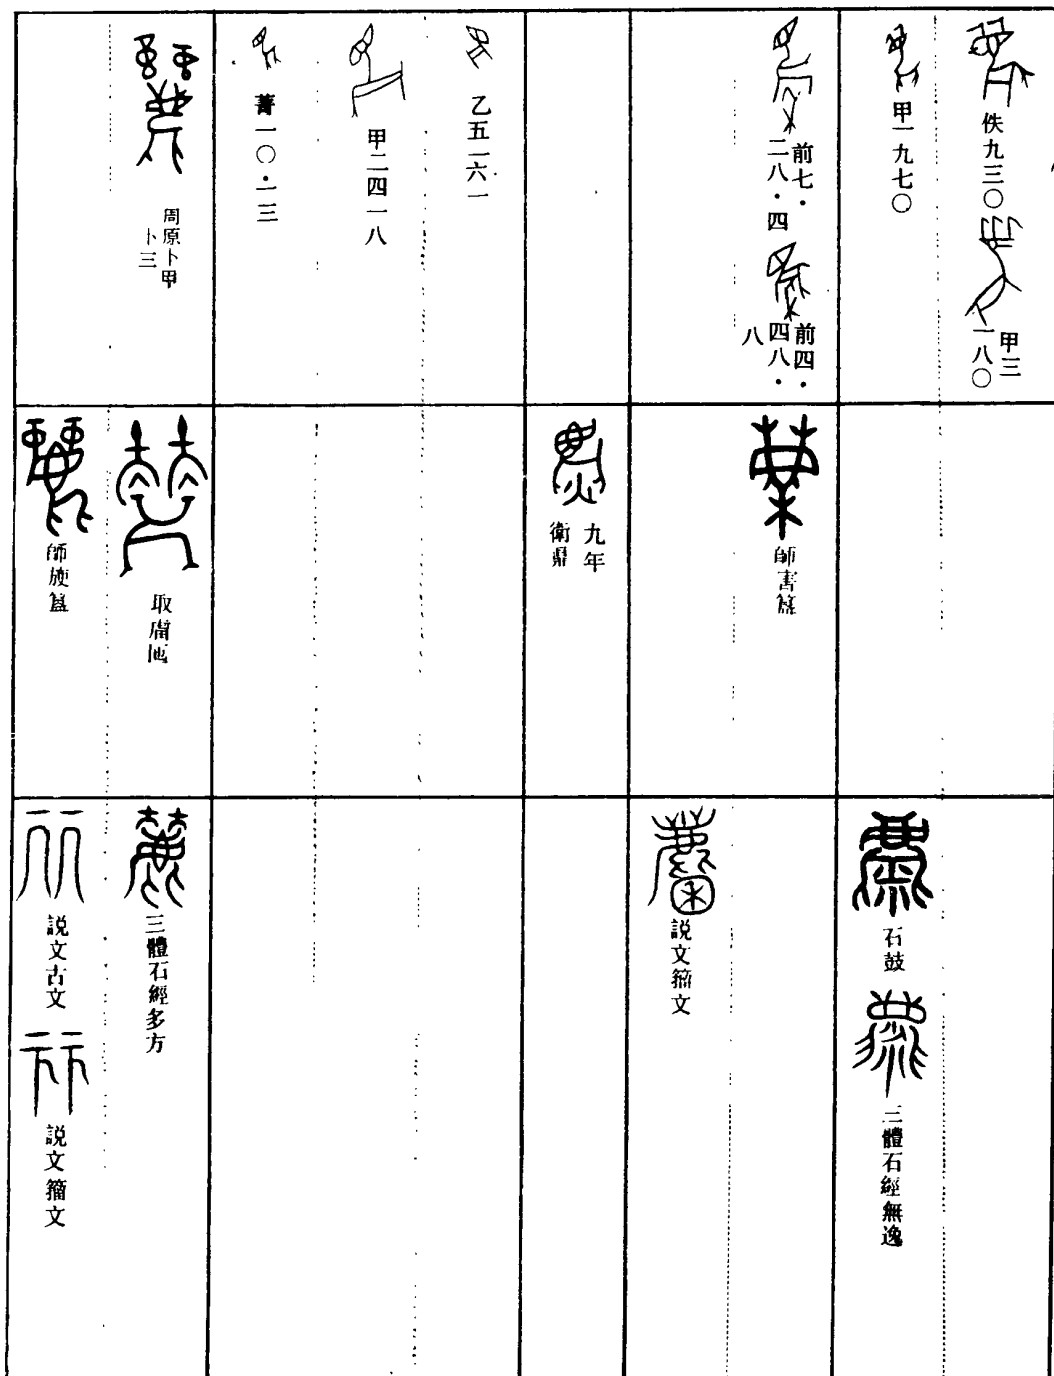 佚九三〇
甲三一八〇
甲一九七〇
前七・二八・四
前四・四八・八
乙五一六一
甲二四一八
菁一〇・一三
周原卜甲卜三
師害簋
九年衛鼎
取膚匜
師𤸫簋
石鼓
三體石經無逸
説文籀文
三體石經多方
説文古文
説文籀文